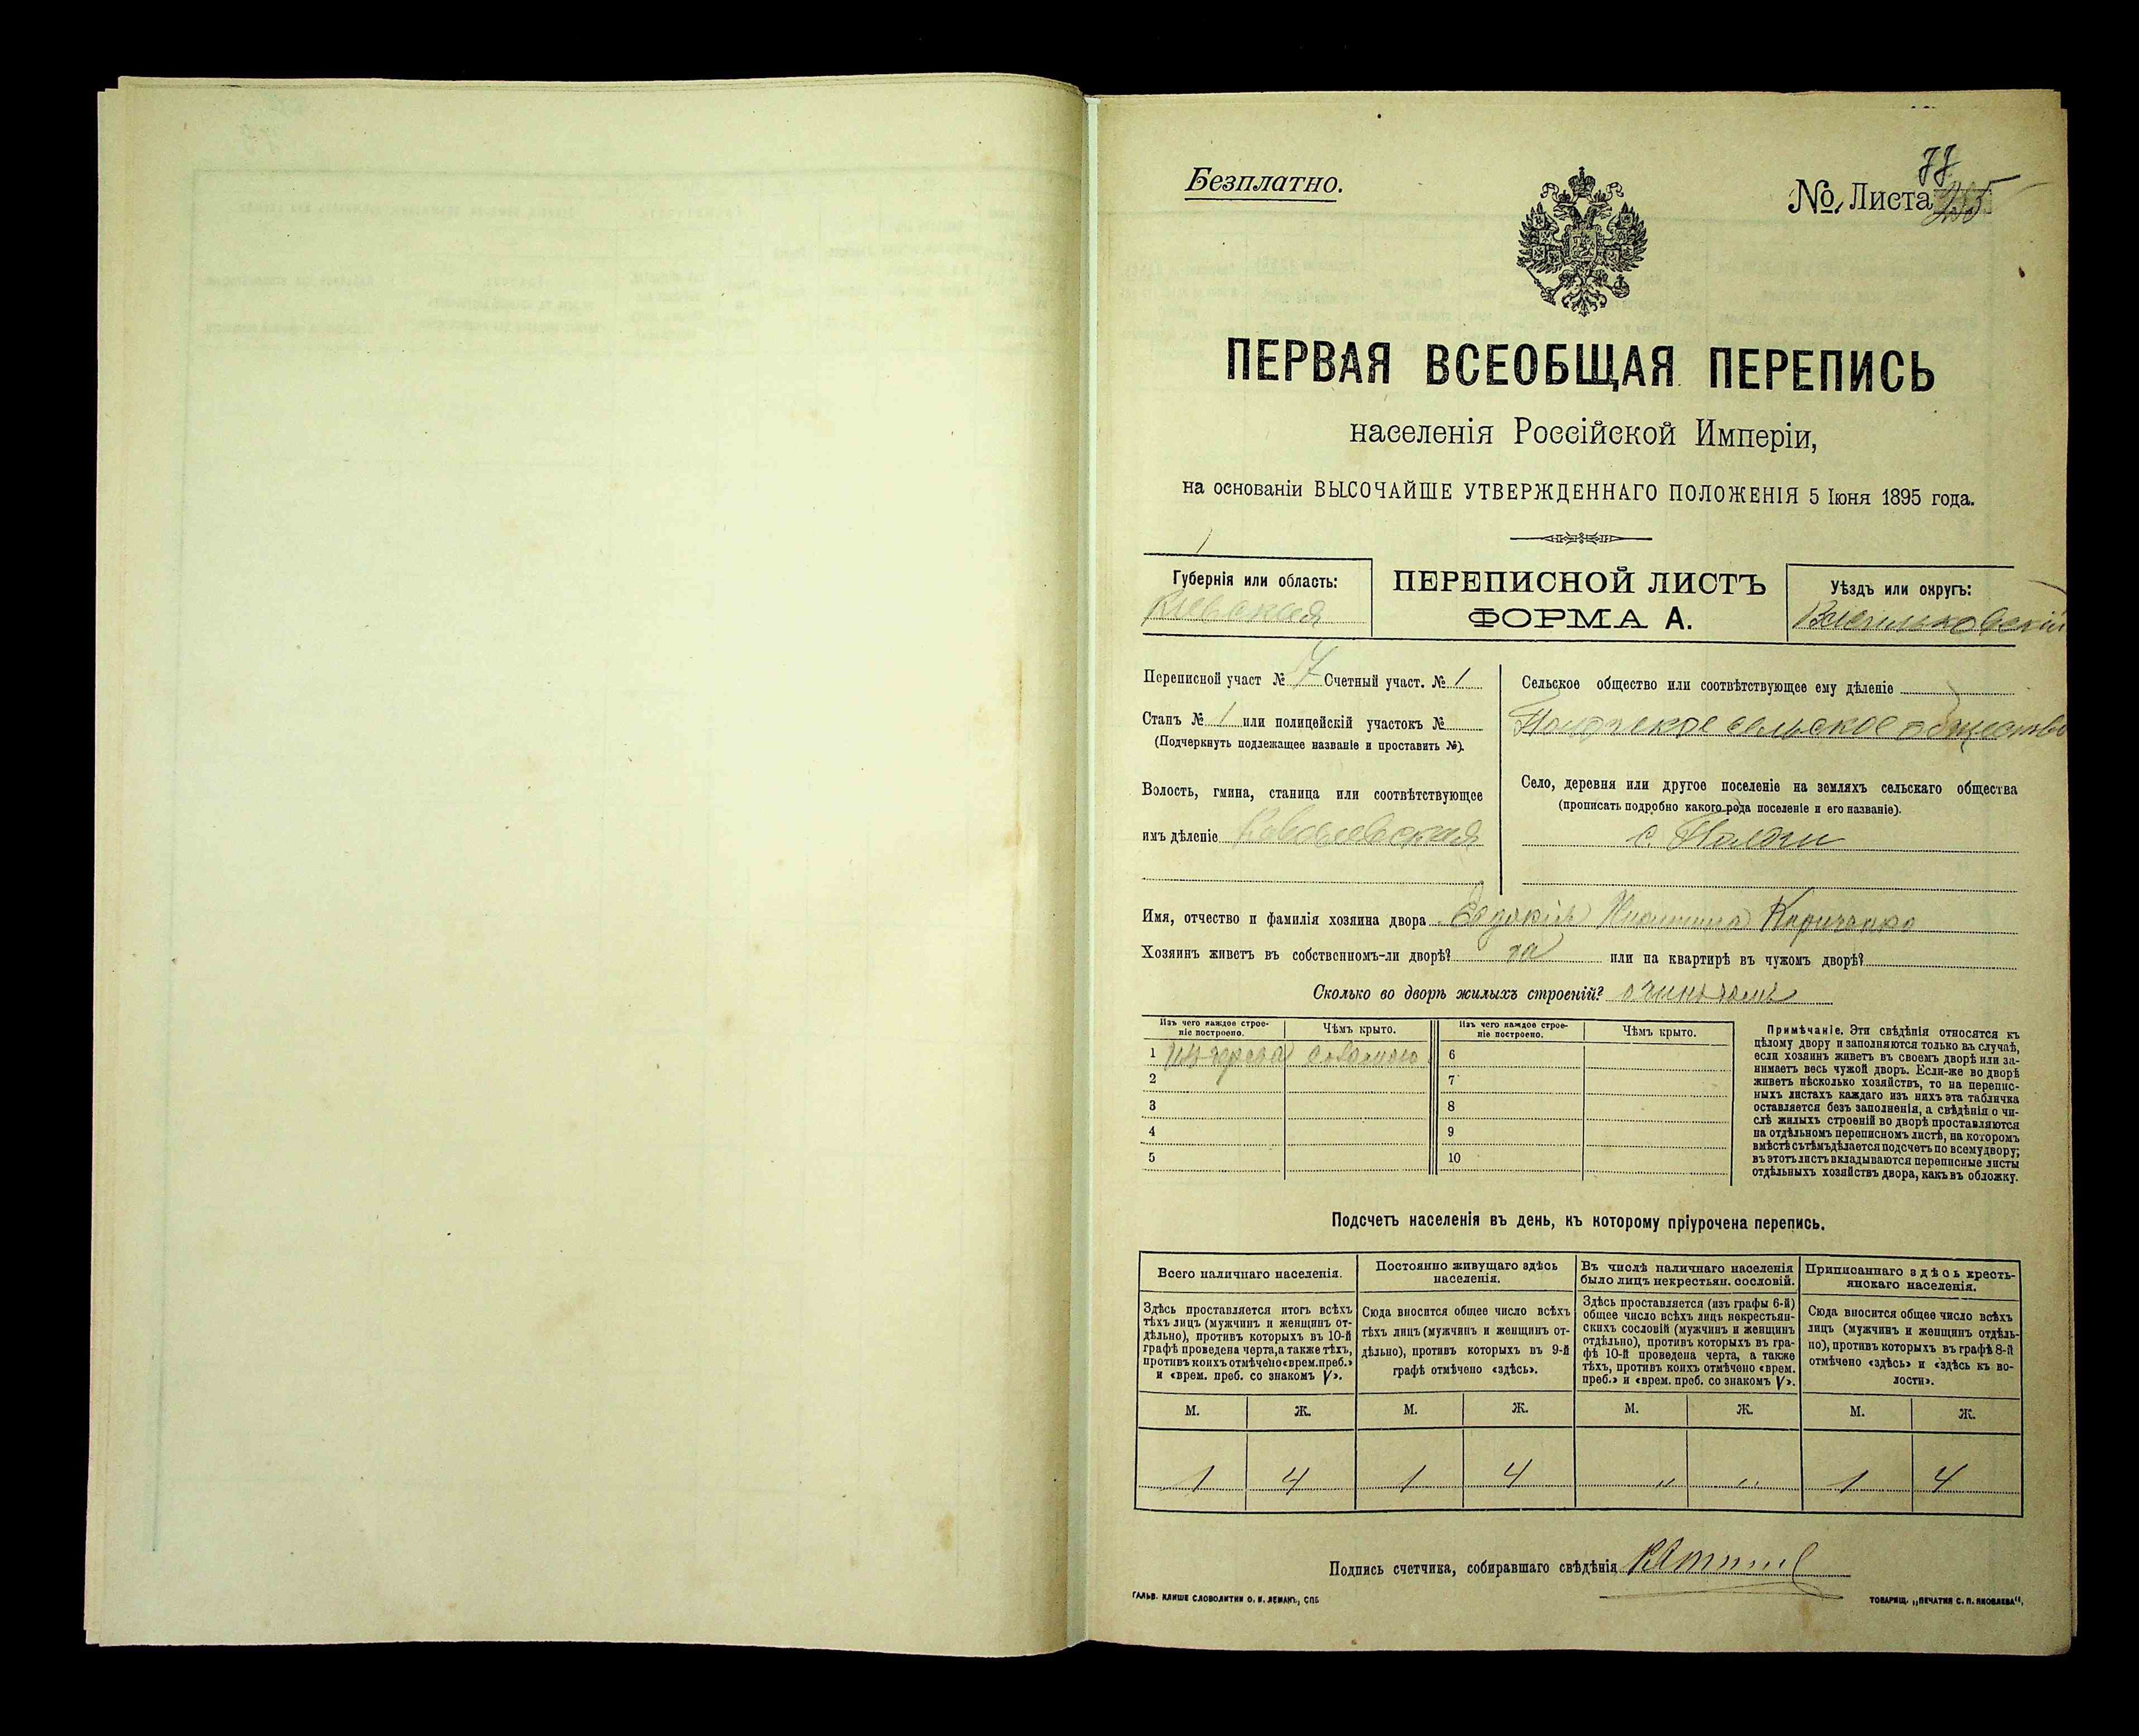 Безплатно.
№ Листа
ПЕРВАЯ ВСЕОБЩАЯ ПЕРЕПИСЬ
населенія Россійской Имперіи,
на основаніи ВЫСОЧАЙШЕ УТВЕРЖДЕННАГО ПОЛОЖЕНІЯ 5 Іюня 1895 года.
Губернія или область:
Кіевская
ПЕРЕПИСНОЙ ЛИСТЪ
ФОРМА А.
Уѣздъ или округъ:
Васильковскій
Переписной участ № 7 Счетный участ. № 1
Станъ № 1 или полицейскій участокъ №
(Подчеркнуть подлежащее названіе и проставить №).
Волость, гмина, станица или соотвѣтствующее
имъ дѣленіе Ковалевская
Сельское общество или соотвѣтствующее ему дѣленіе
сельское общество
Село, деревня или другое поселеніе на земляхъ сельскаго общества
(прописать подробно какого рода поселеніе и его названіе).
с.
Имя, отчество и фамилія хозяина двора Кириченко
Хозяинъ живетъ въ собственномъ-ли дворѣ? да или на квартирѣ въ чужомъ дворѣ?
Сколько во дворѣ жилыхъ строеній?
Изъ чего каждое строе-
ніе построено.
Чѣмъ крыто.
Изъ чего каждое строе-
ніе построено.
Чѣмъ крыто.
1 изъ дерева соломою 6
2 7
3 8
4 9
5 10
Примѣчаніе. Эти свѣдѣнія относятся къ
цѣлому двору и заполняются только въ случаѣ,
если хозяинъ живетъ въ своемъ дворѣ или за-
нимаетъ весь чужой дворъ. Если-же во дворѣ
живетъ нѣсколько хозяйствъ, то на перепис-
ныхъ листахъ каждаго изъ нихъ эта табличка
оставляется безъ заполненія, а свѣдѣнія о чи-
слѣ жилыхъ строеній во дворѣ проставляются
на отдѣльномъ переписномъ листѣ, на которомъ
вмѣстѣ съ тѣмъ дѣлается подсчетъ по всему двору;
въ этотъ листъ вкладываются переписные листы
отдѣльныхъ хозяйствъ двора, какъ въ обложку.
Подсчетъ населенія въ день, къ которому пріурочена перепись.
Всего наличнаго населенія.
Здѣсь проставляется итогъ всѣхъ
тѣхъ лицъ (мужчинъ и женщинъ от-
дѣльно), противъ которыхъ въ 10-й
графѣ проведена черта, а также тѣхъ,
противъ коихъ отмѣчено «врем. преб.»
и «врем. преб. со знакомъ V».
Постоянно живущаго здѣсь
населенія.
Сюда вносится общее число всѣхъ
тѣхъ лицъ (мужчинъ и женщинъ от-
дѣльно), противъ которыхъ въ 9-й
графѣ отмѣчено «здѣсь».
Въ числѣ наличнаго населенія
было лицъ некрестьян. сословій.
Здѣсь проставляется (изъ графы 6-й)
общее число всѣхъ лицъ некрестьян-
скихъ сословій (мужчинъ и женщинъ
отдѣльно), противъ которыхъ въ гра-
фѣ 10-й проведена черта, а также
тѣхъ, противъ коихъ отмѣчено «врем.
преб.» и «врем. преб. со знакомъ V».
Приписаннаго здѣсь кресть-
янскаго населенія.
Сюда вносится общее число всѣхъ
лицъ (мужчинъ и женщинъ отдѣль-
но), противъ которыхъ въ графѣ 8-й
отмѣчено «здѣсь» и «здѣсь къ во-
лости».
М. Ж. М. Ж. М. Ж. М. Ж.
1 4 1 4 " " 1 4
Подпись счетчика, собиравшаго свѣдѣнія
ГАЛЬВ. КЛИШЕ СЛОВОЛИТНИ О. И. ЛЕМАНЪ, СПБ
ТОВАРИЩ. „ПЕЧАТНЯ С. П. ЯКОВЛЕВА“,